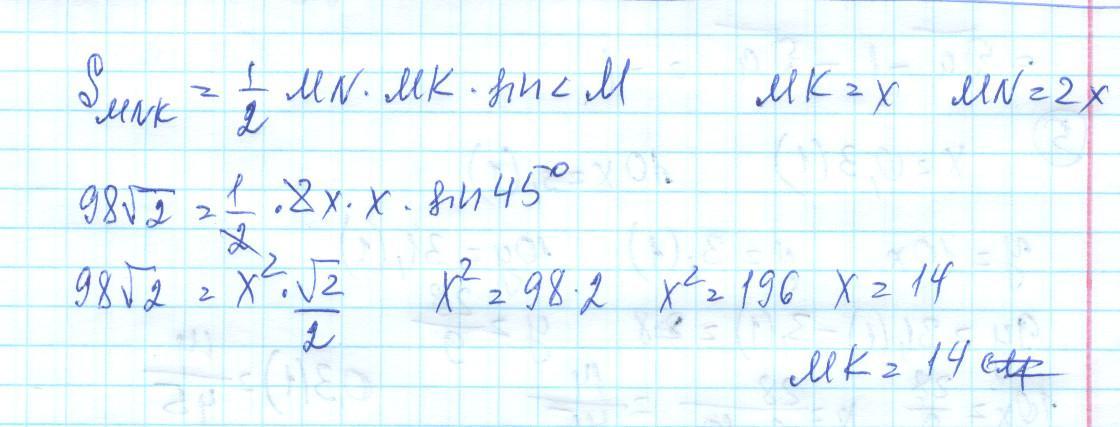 S_MNK = 1/2 MN · MK · sin < M MK = x MN = 2x
98√2 = 1/2 · 2x · x · sin 45°
98√2 = x² · √2/2 x² = 98 · 2 x² = 196 x = 14
MK = 14 см